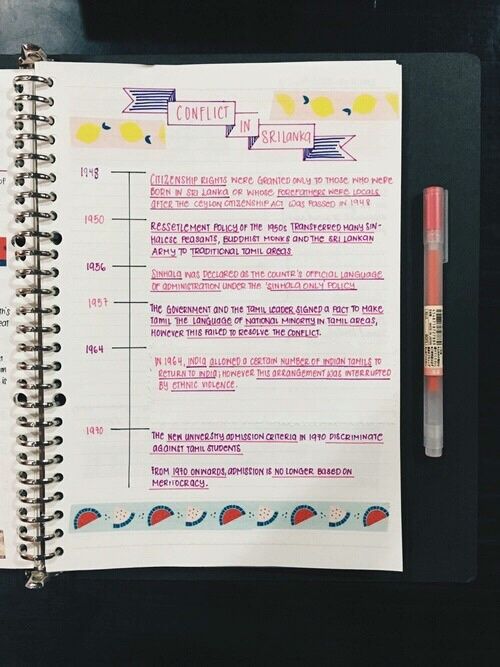 CONFLICT
IN
SRI LANKA
1948
CITIZENSHIP RIGHTS WERE GRANTED ONLY TO THOSE WHO WERE
BORN IN SRI LANKA OR WHOSE FOREFATHERS WERE LOCALS
AFTER THE CEYLON CITIZENSHIP ACT WAS PASSED IN 1948
1950
RESSETLEMENT POLICY OF THE 1950s TRANSFERRED MANY SIN-
HALESE PEASANTS, BUDDHIST MONKS AND THE SRI LANKAN
ARMY TO TRADITIONAL TAMIL AREAS
1956
SINHALA WAS DECLARED AS THE COUNTR'S OFFICIAL LANGUAGE
OF ADMINISTRATION UNDER THE 'SINHALA ONLY' POLICY
1957
THE GOVERNMENT AND THE TAMIL LEADER SIGNED A PACT TO MAKE
TAMIL THE LANGUAGE OF NATIONAL MINORITY IN TAMIL AREAS,
HOWEVER THIS FAILED TO RESOLVE THE CONFLICT.
1964
IN 1964, INDIA ALLOWED A CERTAIN NUMBER OF INDIAN TAMILS TO
RETURN TO INDIA; HOWEVER THIS ARRANGEMENT WAS INTERRUPTED
BY ETHNIC VIOLENCE.
1970
THE NEW UNIVERSITY ADMISSION CRITERIA IN 1970 DISCRIMINATE
AGAINST TAMIL STUDENTS
FROM 1970 ONWARDS, ADMISSION IS NO LONGER BASED ON
MERITOCRACY.